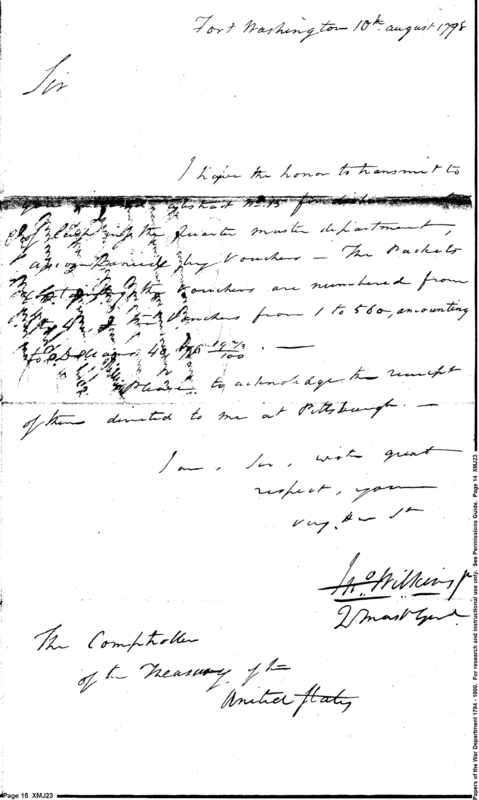 Fort Washington 10th august 1798
Sir
I have the honor to transmit to
abstract No. 15 for
the Quarter master department,
accompanied by Vouchers – The Packets
the Vouchers are numbered from
the Vouchers from 1 to 560, amounting
to
Please to acknolidge the receipt
of them directed to me at Pittsburgh. –
I am, Sir, with great
respect, your
Very Hu St
Jno Wilkins Jr
Q Mast Genl.
The Comptroller
of the Treasury of the
United States
Page 15 XMJ23
Papers of the War Department 1784 - 1800. For research and instructional use only. See Permissions Guide. Page 14 XMJ23